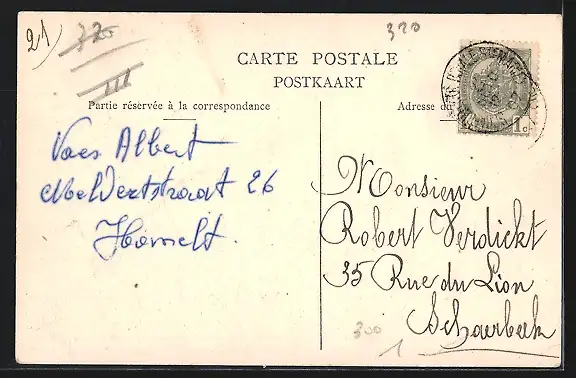 21
320
III
320
CARTE POSTALE
POSTKAART
Partie réservée à la correspondance
Adresse du
1c
Vaes Albert
Meldertstraat 26
Monsieur
Robert Verdickt
35 Rue du Lion
Schaerbeek
300
1